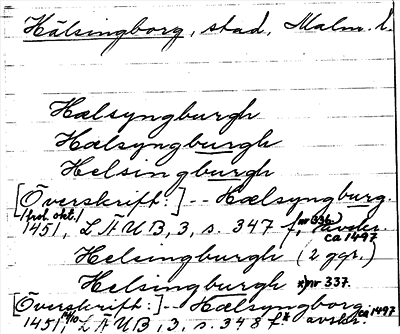 Hälsingborg, stad, Malm. l.
Hælsyngburgh
Hælsyngburgh
Helsingburgh
[Överskrift:] -- Hælsyngburg.
/trol. okt./ 1451, LÄUB, 3, s. 347 f, (nr 336) avskr. ca 1497
Helsingburgh (2 ggr.)
Helsingburgh x) nr 337.
[Överskrift:] -- Hælsyngborg
1451 /10. LÄUB, 3, s. 348 f x avskr. ca 1497